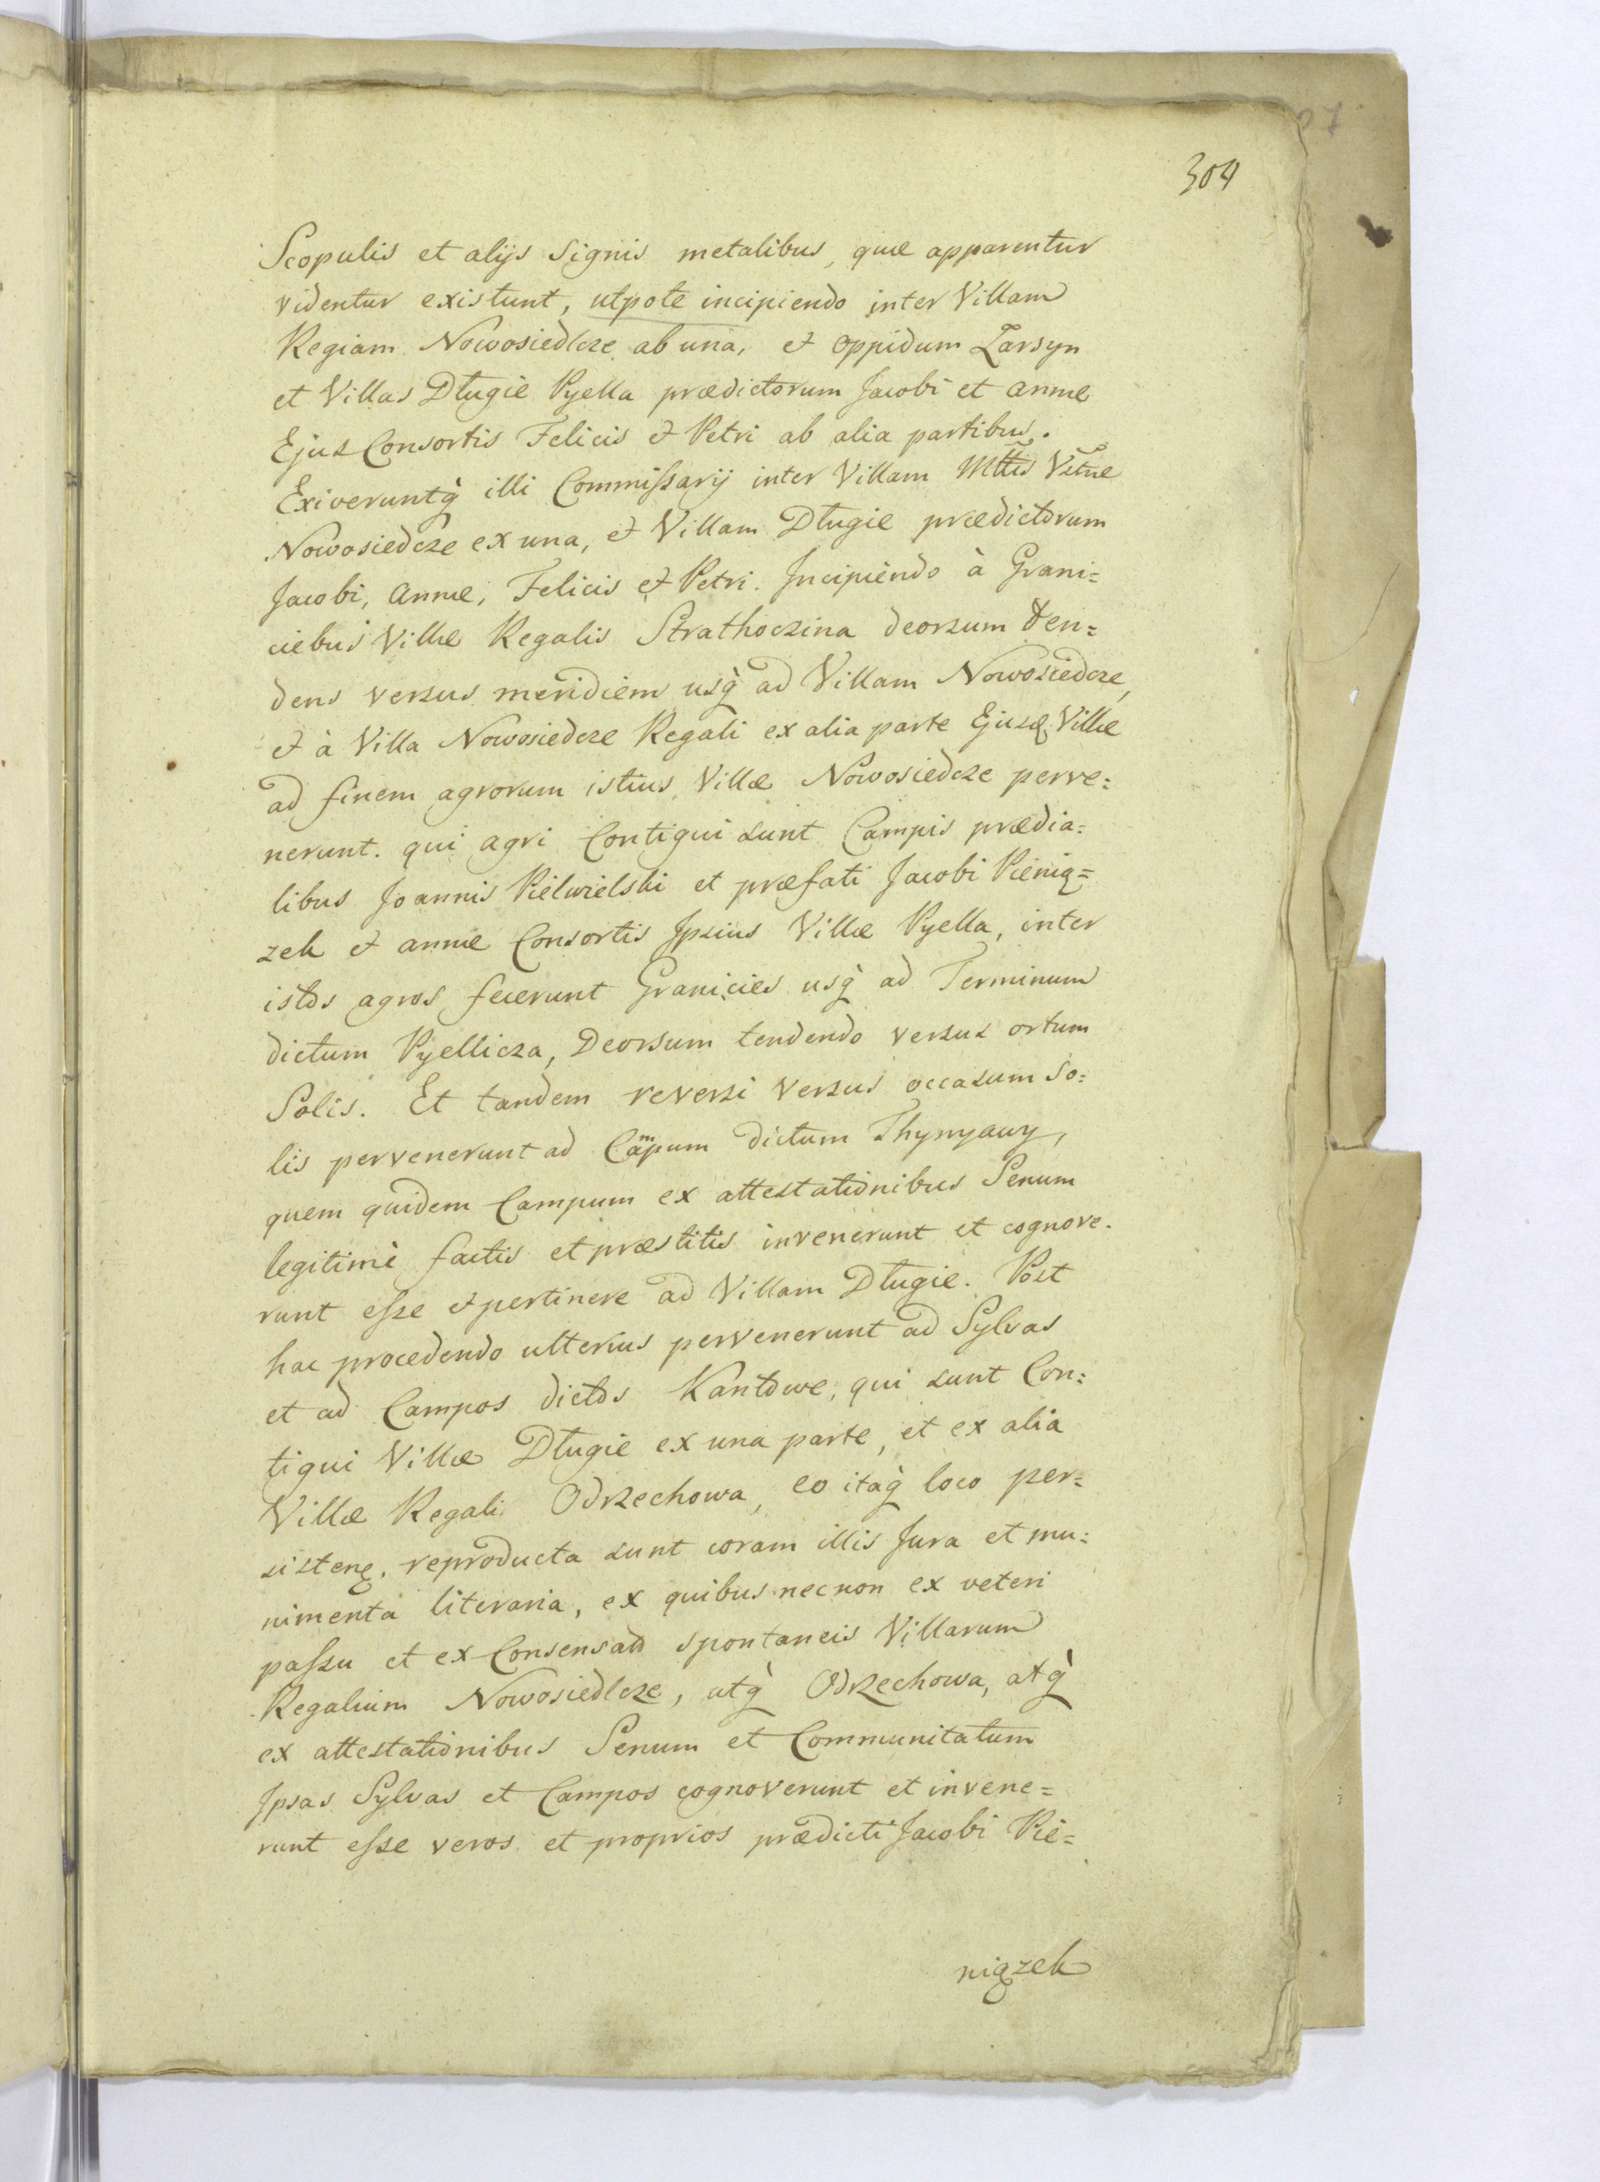 304
Scopulis et alijs Signis metalibus, quæ apparentur
videntur existunt, utpote incipiendo inter Villam
Regiam Nowosiedlcze ab una, et oppidum Zarsyn
et Villas Długie Pyella prædictorum Jacobi et Annæ
Ejus Consortis Felicis et Petri ab alia partibus.
Exiveruntq̀ illi Commissarij inter Villam Mttis Vestræ
Nowosiedcze ex una, et Villam Długie prædictorum
Jacobi, Annæ, Felicis et Petri. Incipiendo à Grani=
ciebus Villæ Regalis Strathoczina deorsum ten=
dens versus meridiem usq̀ ad Villam Nowosiedcze,
et à Villa Nowosiedcze Regali ex alia parte Ejusq Villæ
ad finem agrorum istius Villæ Nowosiedcze perve=
nerunt. qui agri Contigui sunt Campis prædia=
libus Joannis Pielwielski et præfati Jacobi Pienią=
zek et annæ Consortis Ipsius Villæ Pyella, inter
istos agros fecerunt Granicies usq̀ ad Terminum
dictum Pyellicza, Deorsum tendendo versus ortum
Solis. Et tandem reversi versus occasum So=
lis pervenerunt ad Campum dictum Thynyawy,
quem quidem Campum ex attestationibus Senum
legitimè factis et præstitis invenerunt et cognove=
runt esse et pertinere ad Villam Długie. Post
hac procedendo ulterius pervenerunt ad Sylvas
et ad Campos dictos Kantowe, qui sunt Con=
tigui Villæ Długie ex una parte, et ex alia
Villæ Regali Odrzechowa, eo itaq̀ loco per=
sisten. reproducta sunt coram illis Jura et mu=
nimenta literaria, ex quibus necnon ex veteri
passu et ex Consensad spontaneis Villarum
Regalium Nowosiedlcze, atq̀ Odrzechowa, atq̀
ex attestationibus Senum et Communitatum
Ipsas Sylvas et Campos cognoverunt et invene=
runt esse veros et proprios prædicti Jacobi Pie=
niązek